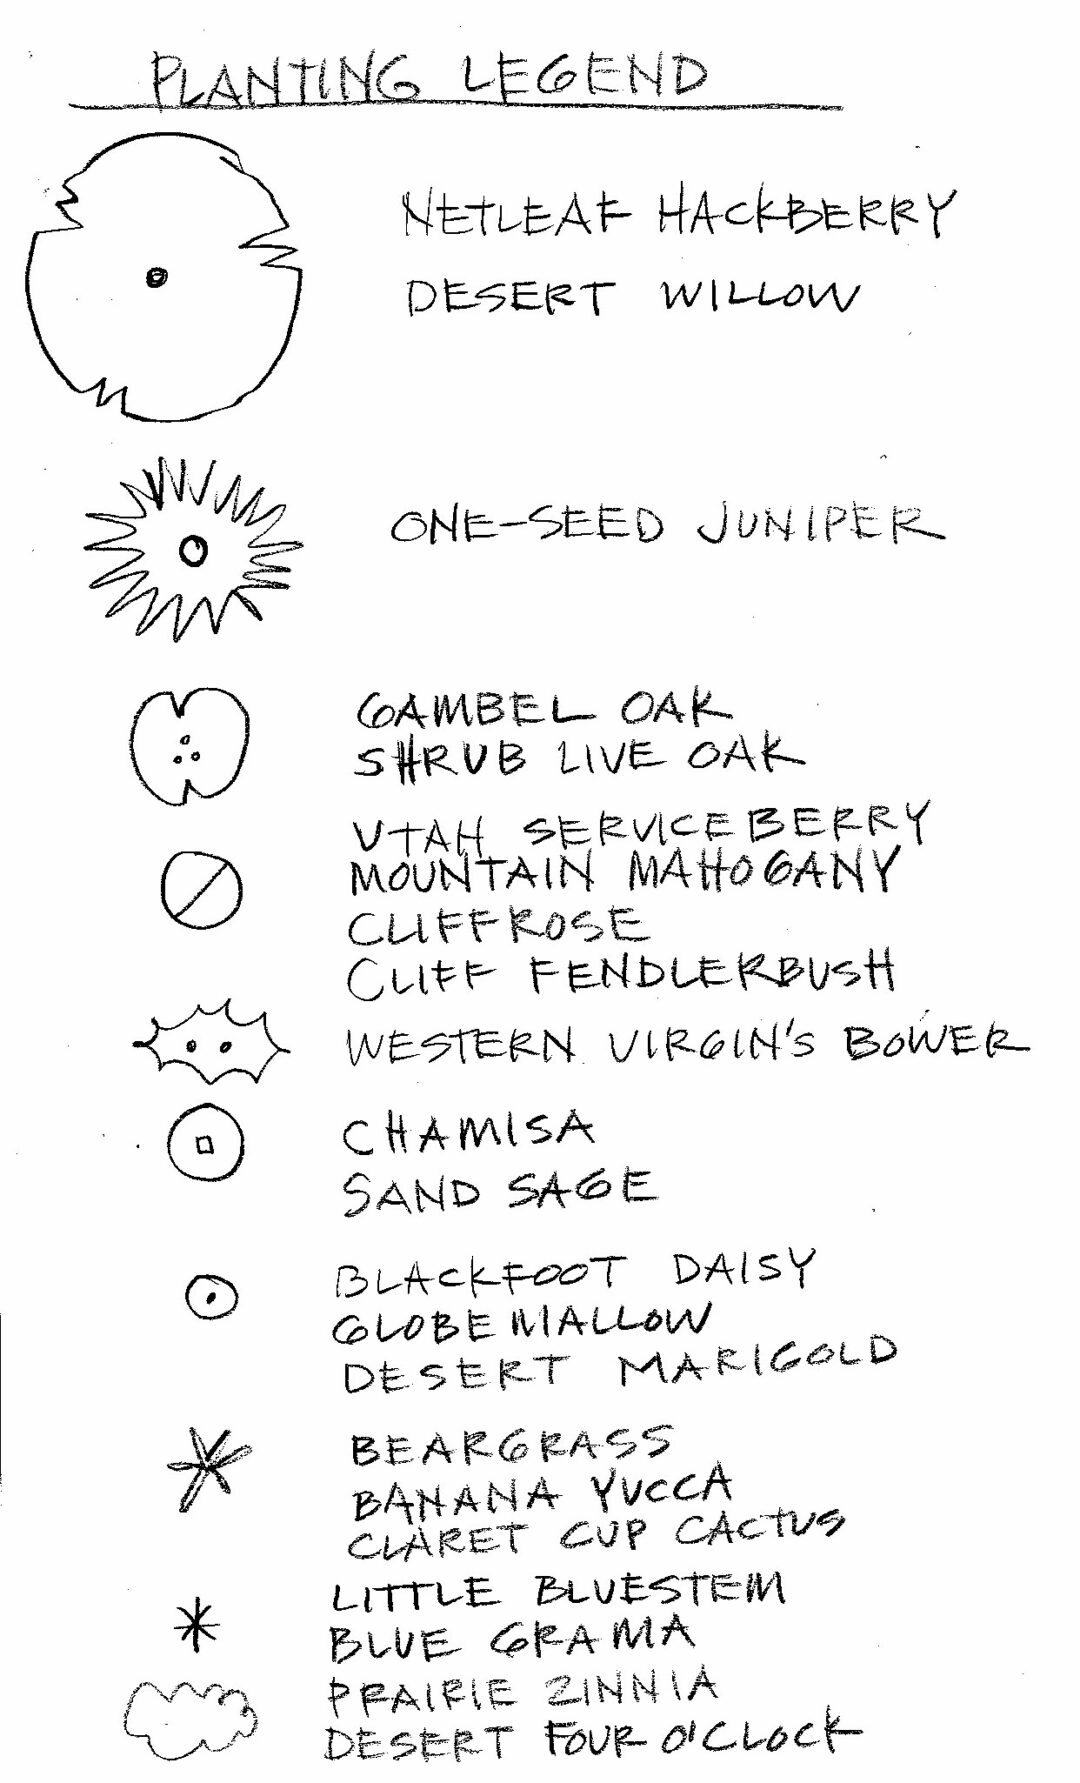 PLANTING LEGEND
NETLEAF HACKBERRY
DESERT WILLOW
ONE-SEED JUNIPER
GAMBEL OAK
SHRUB LIVE OAK
UTAH SERVICEBERRY
MOUNTAIN MAHOGANY
CLIFFROSE
CLIFF FENDLERBUSH
WESTERN VIRGIN'S BOWER
CHAMISA
SAND SAGE
BLACKFOOT DAISY
GLOBEMALLOW
DESERT MARIGOLD
BEARGRASS
BANANA YUCCA
CLARET CUP CACTUS
LITTLE BLUESTEM
BLUE GRAMA
PRAIRIE ZINNIA
DESERT FOUR O'CLOCK